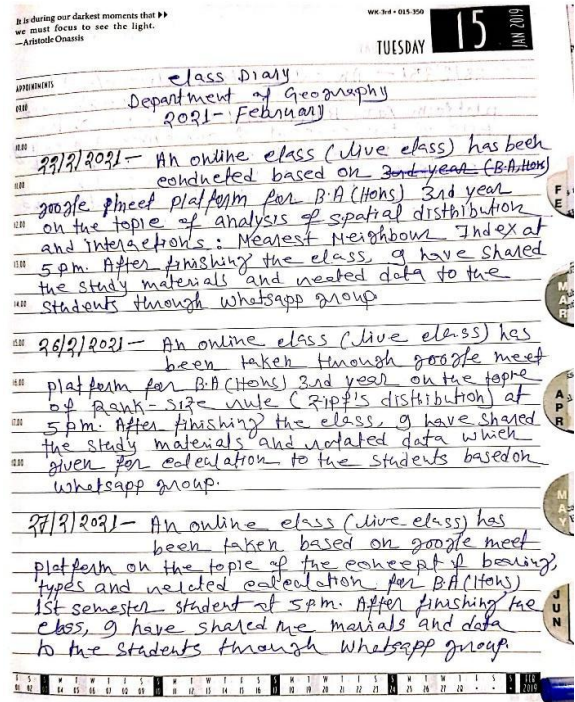 It is during our darkest moments that ▸▸
we must focus to see the light.
—Aristotle Onassis
WK-3rd • 015-350
TUESDAY
15
JAN 2019
APPOINTMENTS
Class Diary
Department of Geography
2021- February
09.00
10.00
22/2/2021 — An online class (live class) has been
conducted based on 3rd year (B.A, Hons)
11.00
google meet platform for B.A (Hons) 3rd year
on the topic of analysis of spatial distribution
12.00
and interactions : Nearest Neighbour Index at
5 pm. After finishing the class, I have shared
13.00
the study materials and related data to the
students through whatsapp group.
14.00
15.00
26/2/2021 — An online class (live class) has
been taken through google meet
16.00
platform for B.A (Hons) 3rd year on the topic
of Rank-size rule (Zipf's distribution) at
17.00
5 pm. After finishing the class, I have shared
the study materials and related data which
18.00
given for calculation to the students based on
whatsapp group.
27/2/2021 — An online class (live class) has
been taken based on google meet
platform on the topic of the concept of bearing,
types and related calculation for B.A (Hons)
1st semester student at 5 pm. After finishing the
class, I have shared the marials and data
to the students through whatsapp group.
FE
MAR
APR
MAY
JUN
FEB
2019